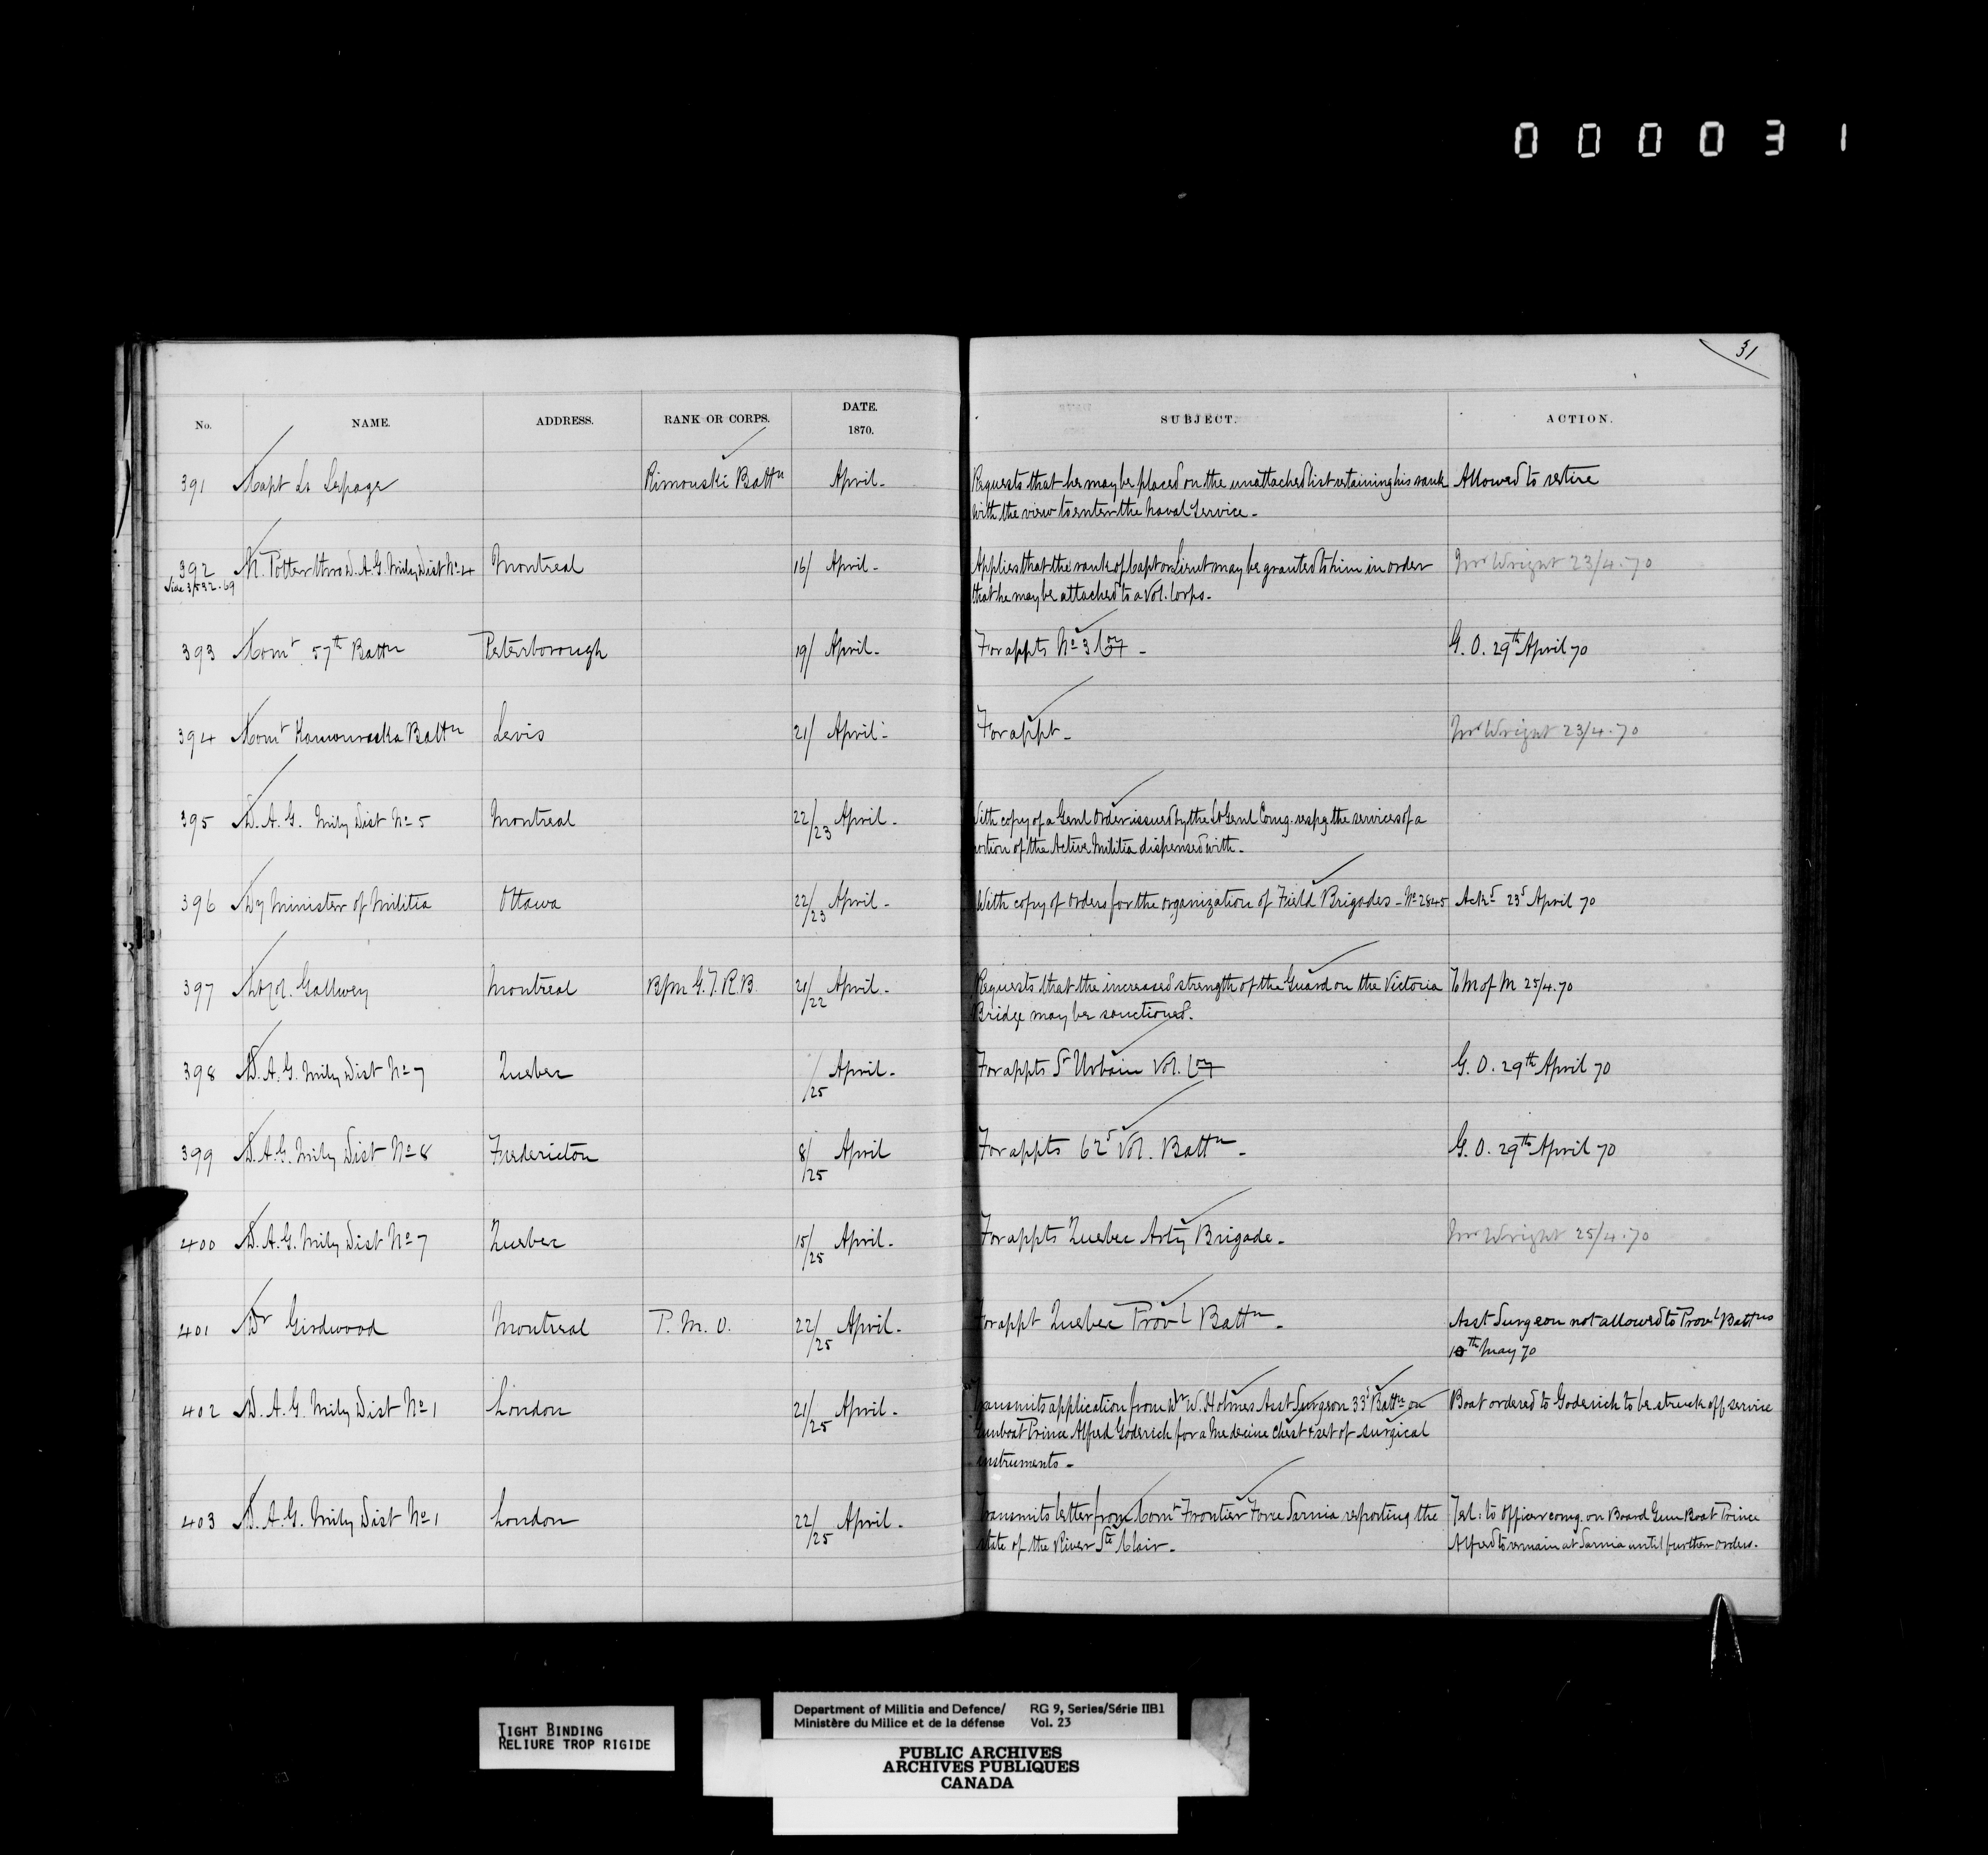 000031
31
No. NAME. ADDRESS. RANK OR CORPS. DATE. 1870. SUBJECT. ACTION.
391 Capt Ls Lepage Rimouski Battn April - Requests that he may be placed on the unattached list retaining his rank Allowed to retire
with the view to enter the Naval Service -
392 N. Potter thro D.A.G. Mily Dist No 4 Montreal 16/ April - Applies that the rank of Capt or Lieut may be granted to him in order Mr Wright 23/4.70
Vide 3/532.69 that he may be attached to a Vol. Corps -
393 Comt 57th Battn Peterborough 19/ April - For appts No 3 Coy - G.O. 29th April 70
394 Comt Kamouraska Battn Levis 21/ April - For appt - Mr Wright 23/4.70
395 D.A.G. Mily Dist No 5 Montreal 22/23 April - With copy of a Genl Order issued by the Lt Genl Comg. respg the services of a
portion of the Active Militia dispensed with -
396 Dy Minister of Militia Ottawa 22/23 April - With copy of orders for the organization of Field Brigades - No 2845 Ackd 23d April 70
397 Lt Col. Gallwey Montreal B/m G.T.R.B. 21/22 April - Requests that the increased strength of the Guard on the Victoria To M of M 25/4.70
Bridge may be sanctioned.
398 D.A.G. Mily Dist No 7 Quebec /25 April - For appts St Urbain Vol. Coy G.O. 29th April 70
399 D.A.G. Mily Dist No 8 Fredericton 8/25 April For appts 62d Vol. Battn - G.O. 29th April 70
400 D.A.G. Mily Dist No 7 Quebec 15/25 April - For appts Quebec Arty Brigade - Mr Wright 25/4.70
401 Dr Girdwood Montreal P.M.O. 22/25 April - For appt Quebec Provl Battn - Asst Surgeon not allowed to Provl Battns
10th May 70
402 D.A.G. Mily Dist No 1 London 21/25 April - Transmits application from Dr W. Holmes Asst Surgeon 33d Battn on Boat ordered to Goderich to be struck off service
Gunboat Prince Alfred Goderich for a Medecine Chest & set of surgical
instruments -
403 D.A.G. Mily Dist No 1 London 22/25 April - Transmits letter from Comt Frontier Force Sarnia reporting the Tel: to Officer comg. on Board Gun Boat Prince
state of the River Ste Clair - Alfred to remain at Sarnia until further orders.
TIGHT BINDING
RELIURE TROP RIGIDE
Department of Militia and Defence/ RG 9, Series/Série IIB1
Ministère du Milice et de la défense Vol. 23
PUBLIC ARCHIVES
ARCHIVES PUBLIQUES
CANADA